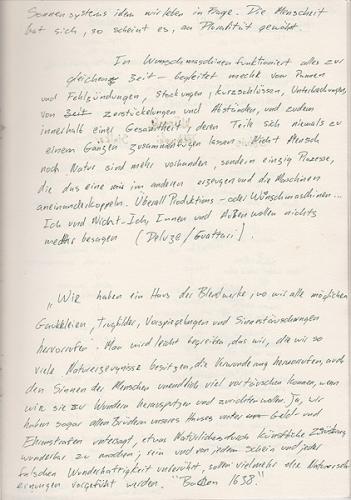 Sonnensystems in dem wir leben in Frage. Die Menscheit
hat sich, so scheint es, an Pluralität gewöhnt.
In Wunschmaschinen funktioniert alles zur
gleichen Zeit – begleitet von Pannen
und Fehlzündungen, Stockungen, kurzschlüssen, Unterbrechungen,
von Zerstückelungen und Abständen, und zudem
innerhalb einer Gesamtheit, deren Teile sich niemals zu
einem Ganzen zusammenfügen lassen. Nicht Mensch
noch Natur sind mehr vorhanden, sondern einzig Prozesse,
die das eine im anderen erzeugen und die Maschinen
aneinanderkoppeln. Überall Produktions- oder Wünschmaschinen...
Ich und Nicht-Ich, Innen und Außen wollen nichts
mehr besagen (Deluze/Guattari).
„Wir haben ein Haus der Blendwerke, wo wir alle möglichen
Gaukeleien, Trugbilder, Vorspiegelungen und Sinnestäuschungen
hervorrufen. Man wird leicht begreifen, das wir, die wir so
viele Naturerzeugnisse besitzen, die Verwunderung hervorrufen, auch
den Sinnen der Menschen unendlich viel vortäuschen können, wenn
wir sie zu Wundern herausputzen und zurichten wollen. Ja, wir
haben sogar allen Brüdern unseres Hauses unter Geld- und
Ehrenstrafen untersagt, etwas Natürliches durch künstliche Zurüstung
wunderbar zu machen; rein und von jedem schein und jeder
falschen Wunderhaftigkeit unberührt, sollen vielmehr die
vorgeführt werden." Bacon 1638."